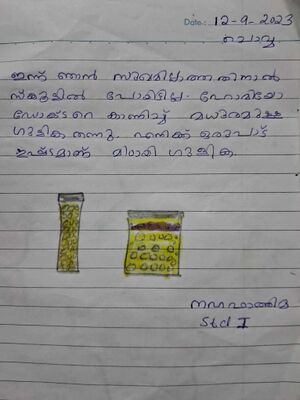 Date: 12-9-2023
ചൊവ്വ
ഇന്ന് ഞാൻ സുഖമില്ലാത്തതിനാൽ
സ്കൂളിൽ പോയിട്ടില്ല. ഹോമിയോ
ഡോക്ടറെ കാണിച്ച് മധുരമുള്ള
ഗുളിക തന്നു. എനിക്ക് ഒരുപാട്
ഇഷ്ടമാണ് മിഠായി ഗുളിക.
ഫാത്തിമ
Std I